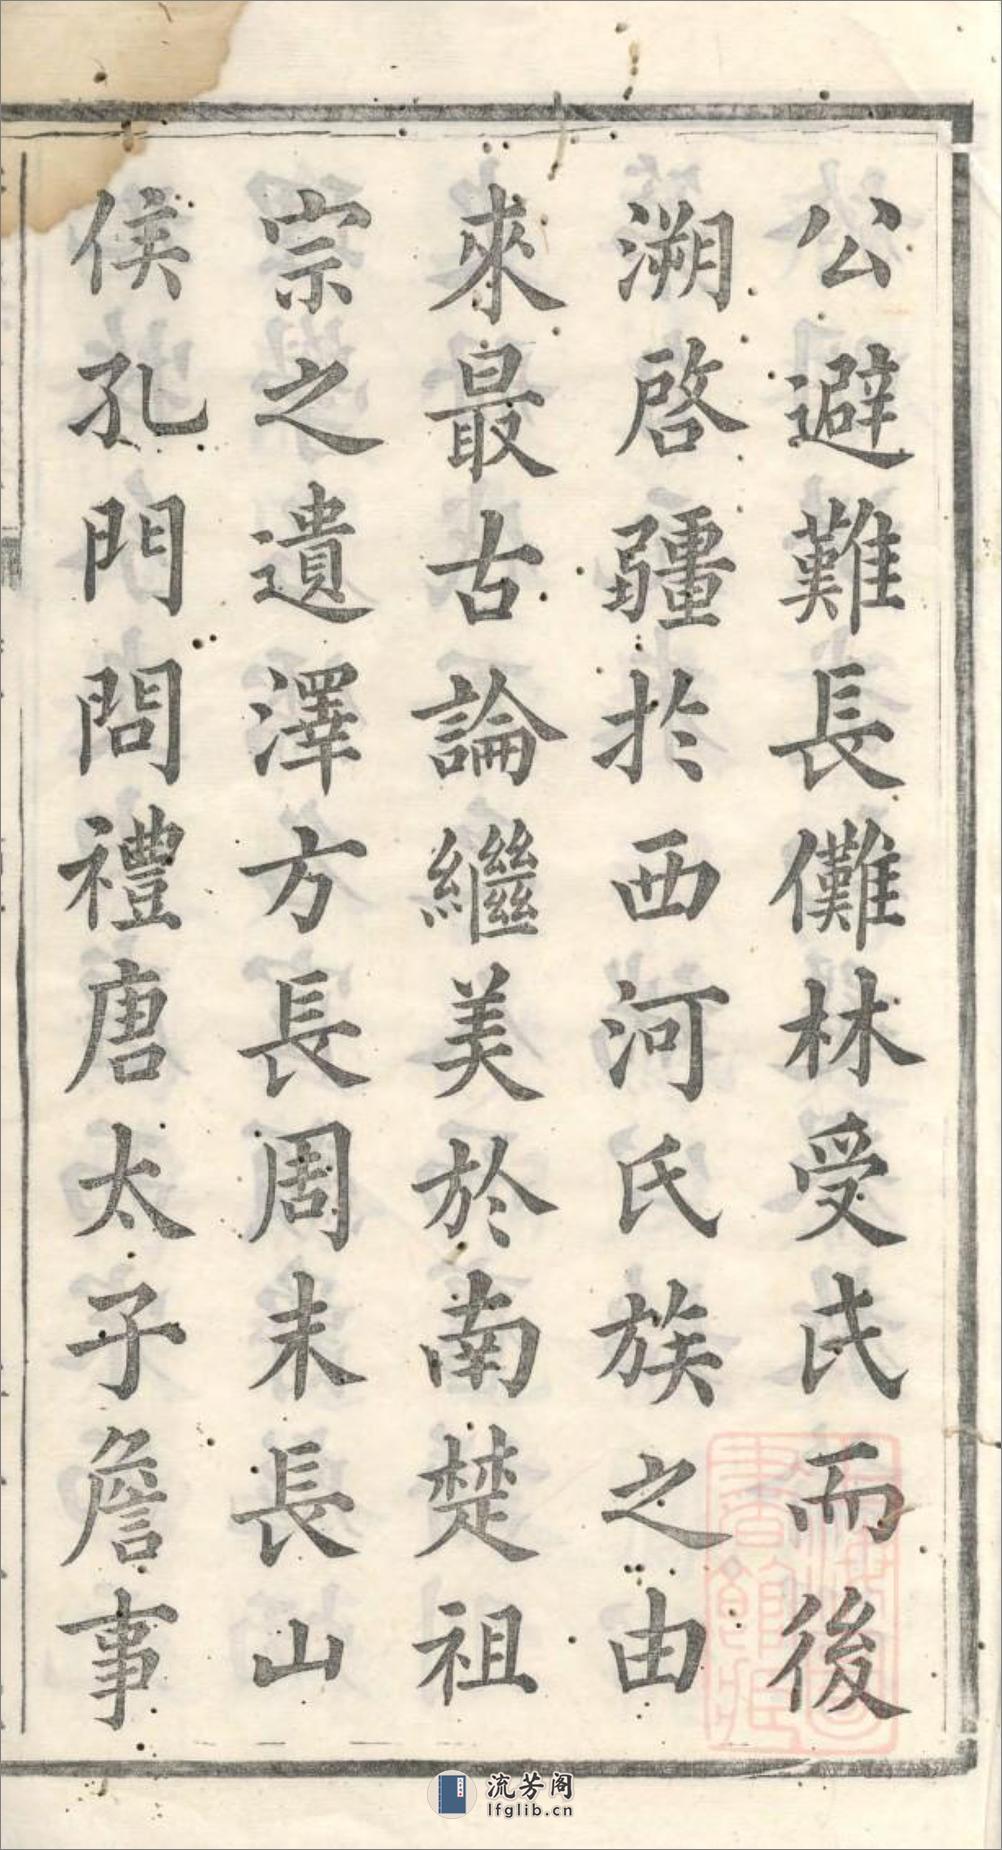 公避難長儺林受氏而後
溯啓疆於西河氏族之由
來最古論繼美於南楚祖
宗之遺澤方長周末長山
侯孔門問禮唐太子詹事
流芳阁
lfglib.cn